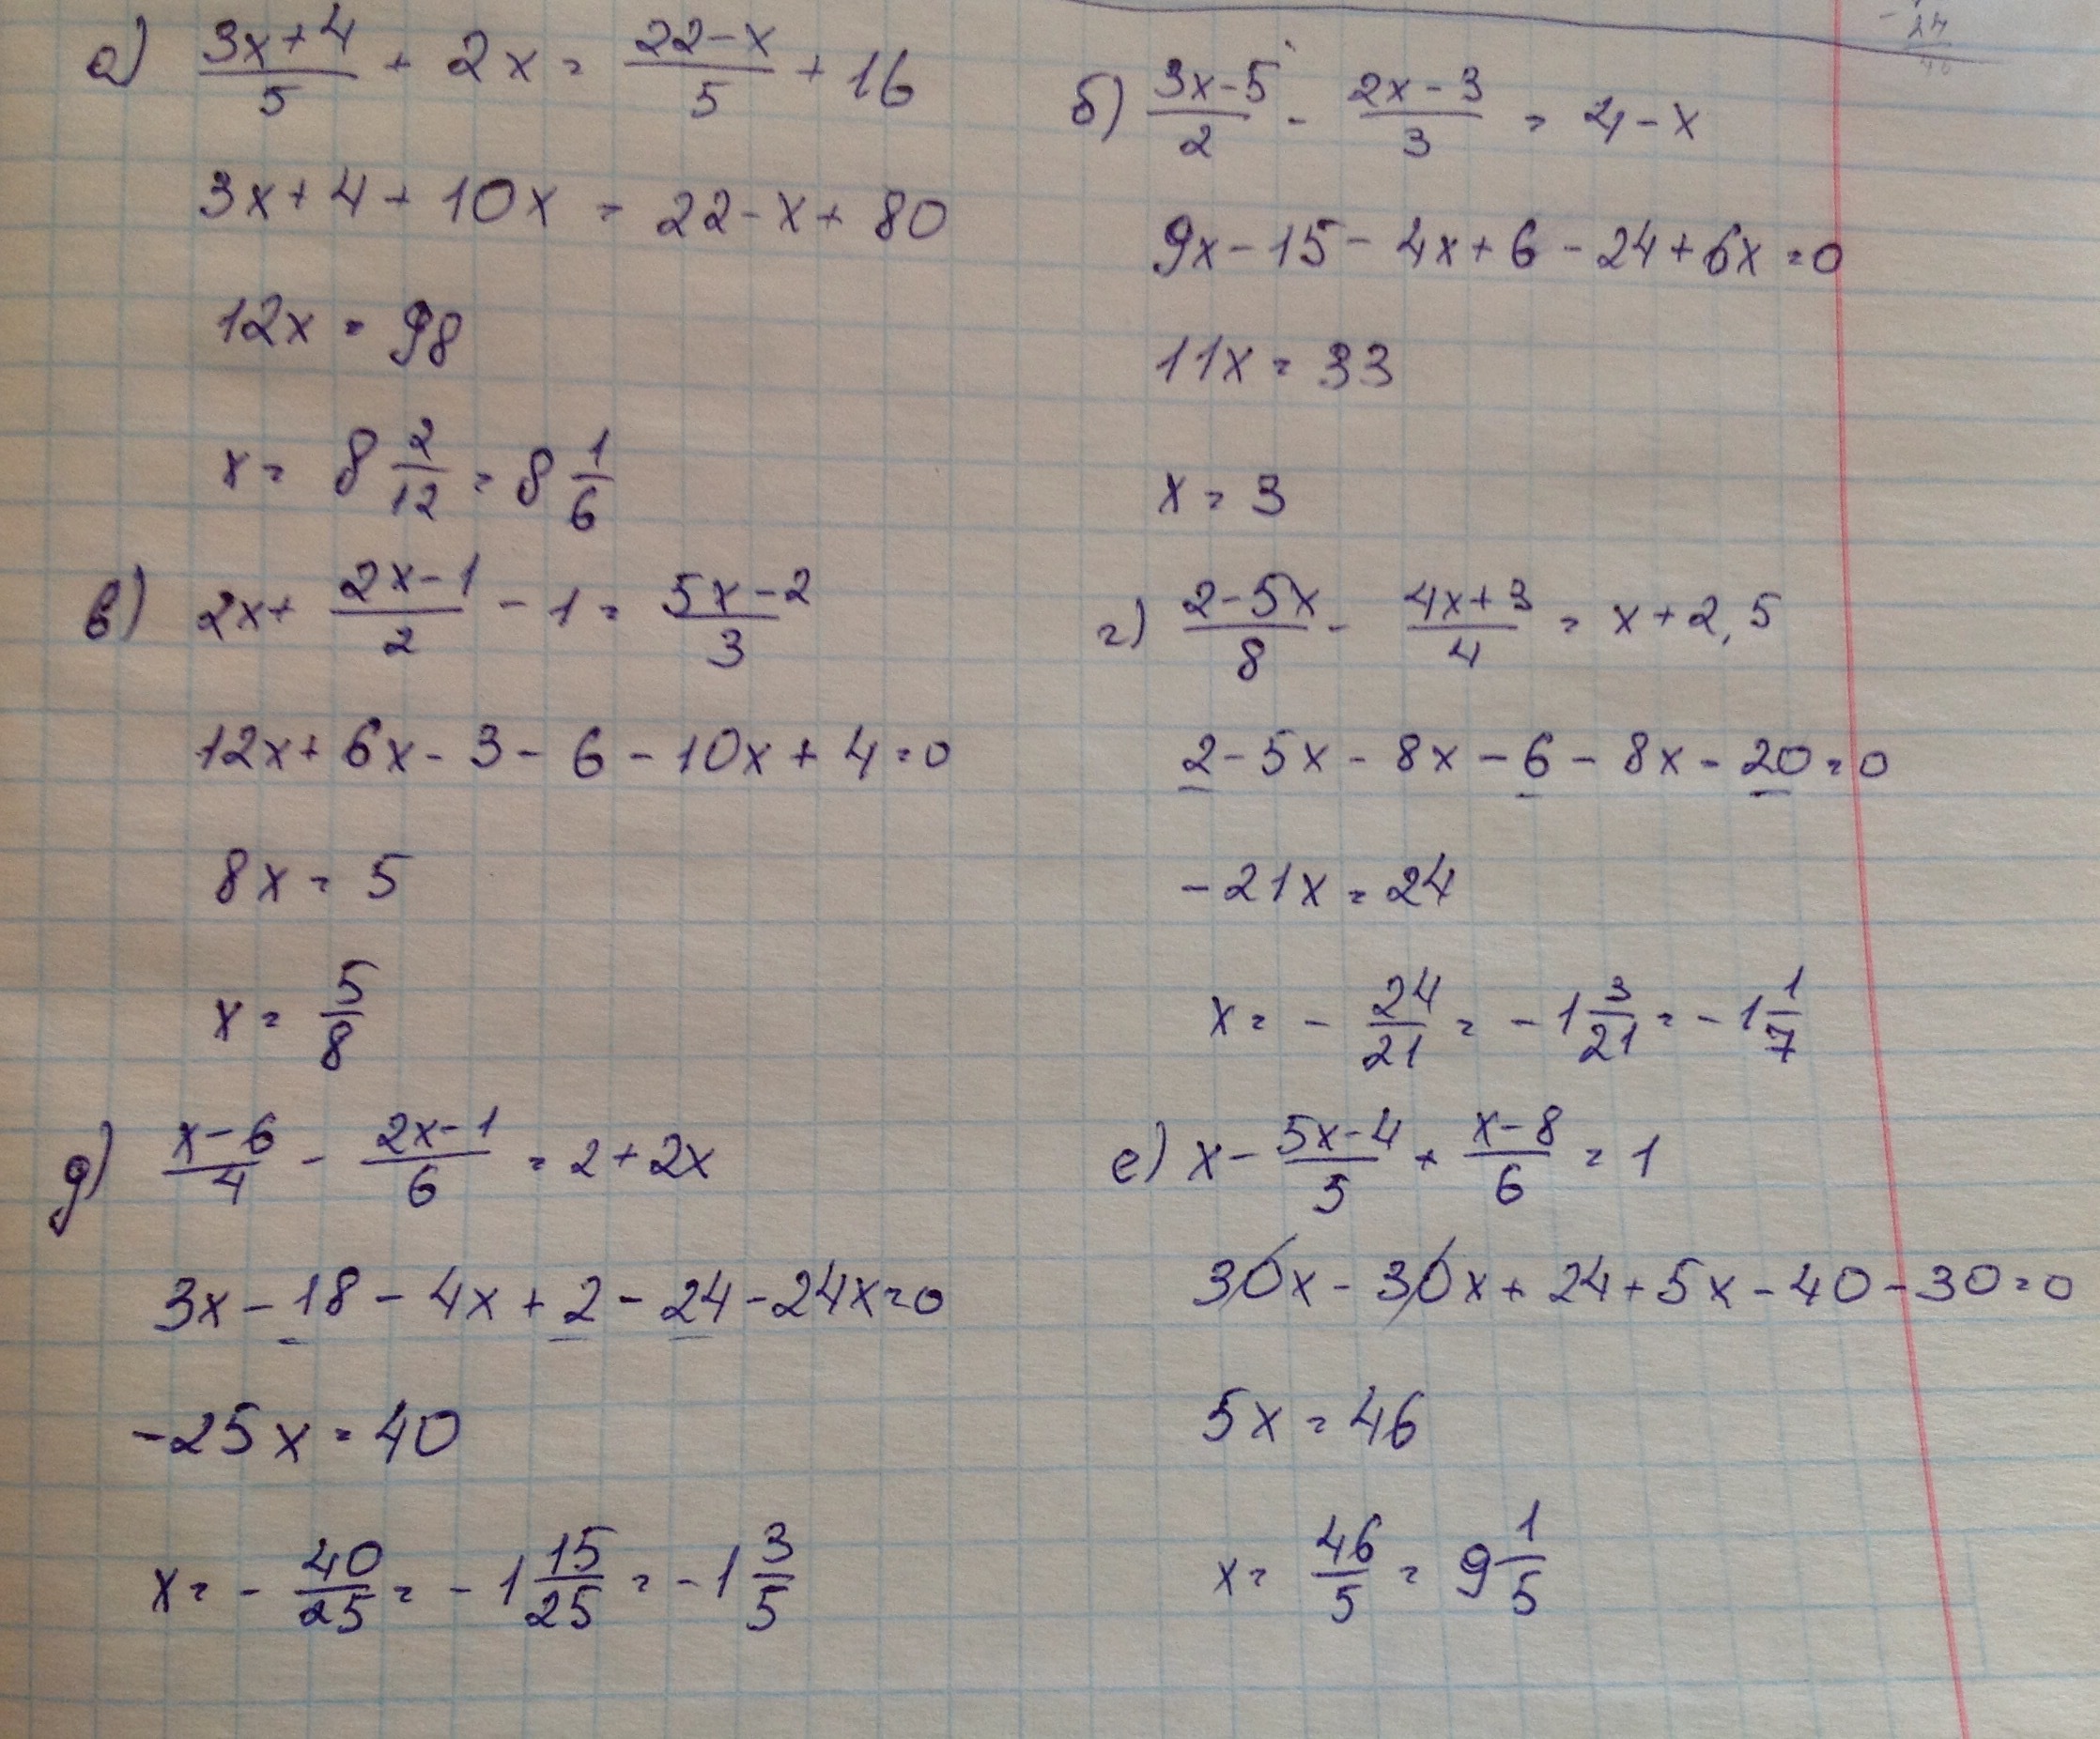 а) (3x+4)/5 + 2x = (22-x)/5 + 16
3x+4+10x = 22-x+80
12x = 98
x = 8 2/12 = 8 1/6
б) (3x-5)/2 - (2x-3)/3 = 4-x
9x-15-4x+6-24+6x=0
11x = 33
x = 3
в) 2x+ (2x-1)/2 - 1 = (5x-2)/3
12x+6x-3-6-10x+4=0
8x = 5
x = 5/8
г) (2-5x)/8 - (4x+3)/4 = x+2,5
2-5x-8x-6-8x-20=0
-21x = 24
x = - 24/21 = -1 3/21 = -1 1/7
д) (x-6)/4 - (2x-1)/6 = 2+2x
3x-18-4x+2-24-24x=0
-25x = 40
x = - 40/25 = -1 15/25 = -1 3/5
е) x - (5x-4)/5 + (x-8)/6 = 1
30x-30x+24+5x-40-30=0
5x = 46
x = 46/5 = 9 1/5